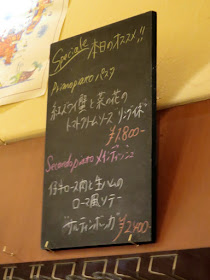 Speciale 本日のオススメ!!
Primo piatto パスタ
紅ズワイ蟹と菜の花の
トマトクリームソース リングイネ
¥1,800-
Secondo piatto メインディッシュ
仔牛ロース肉と生ハムの
ローマ風ソテー
"サルティンボッカ" ¥2,400-